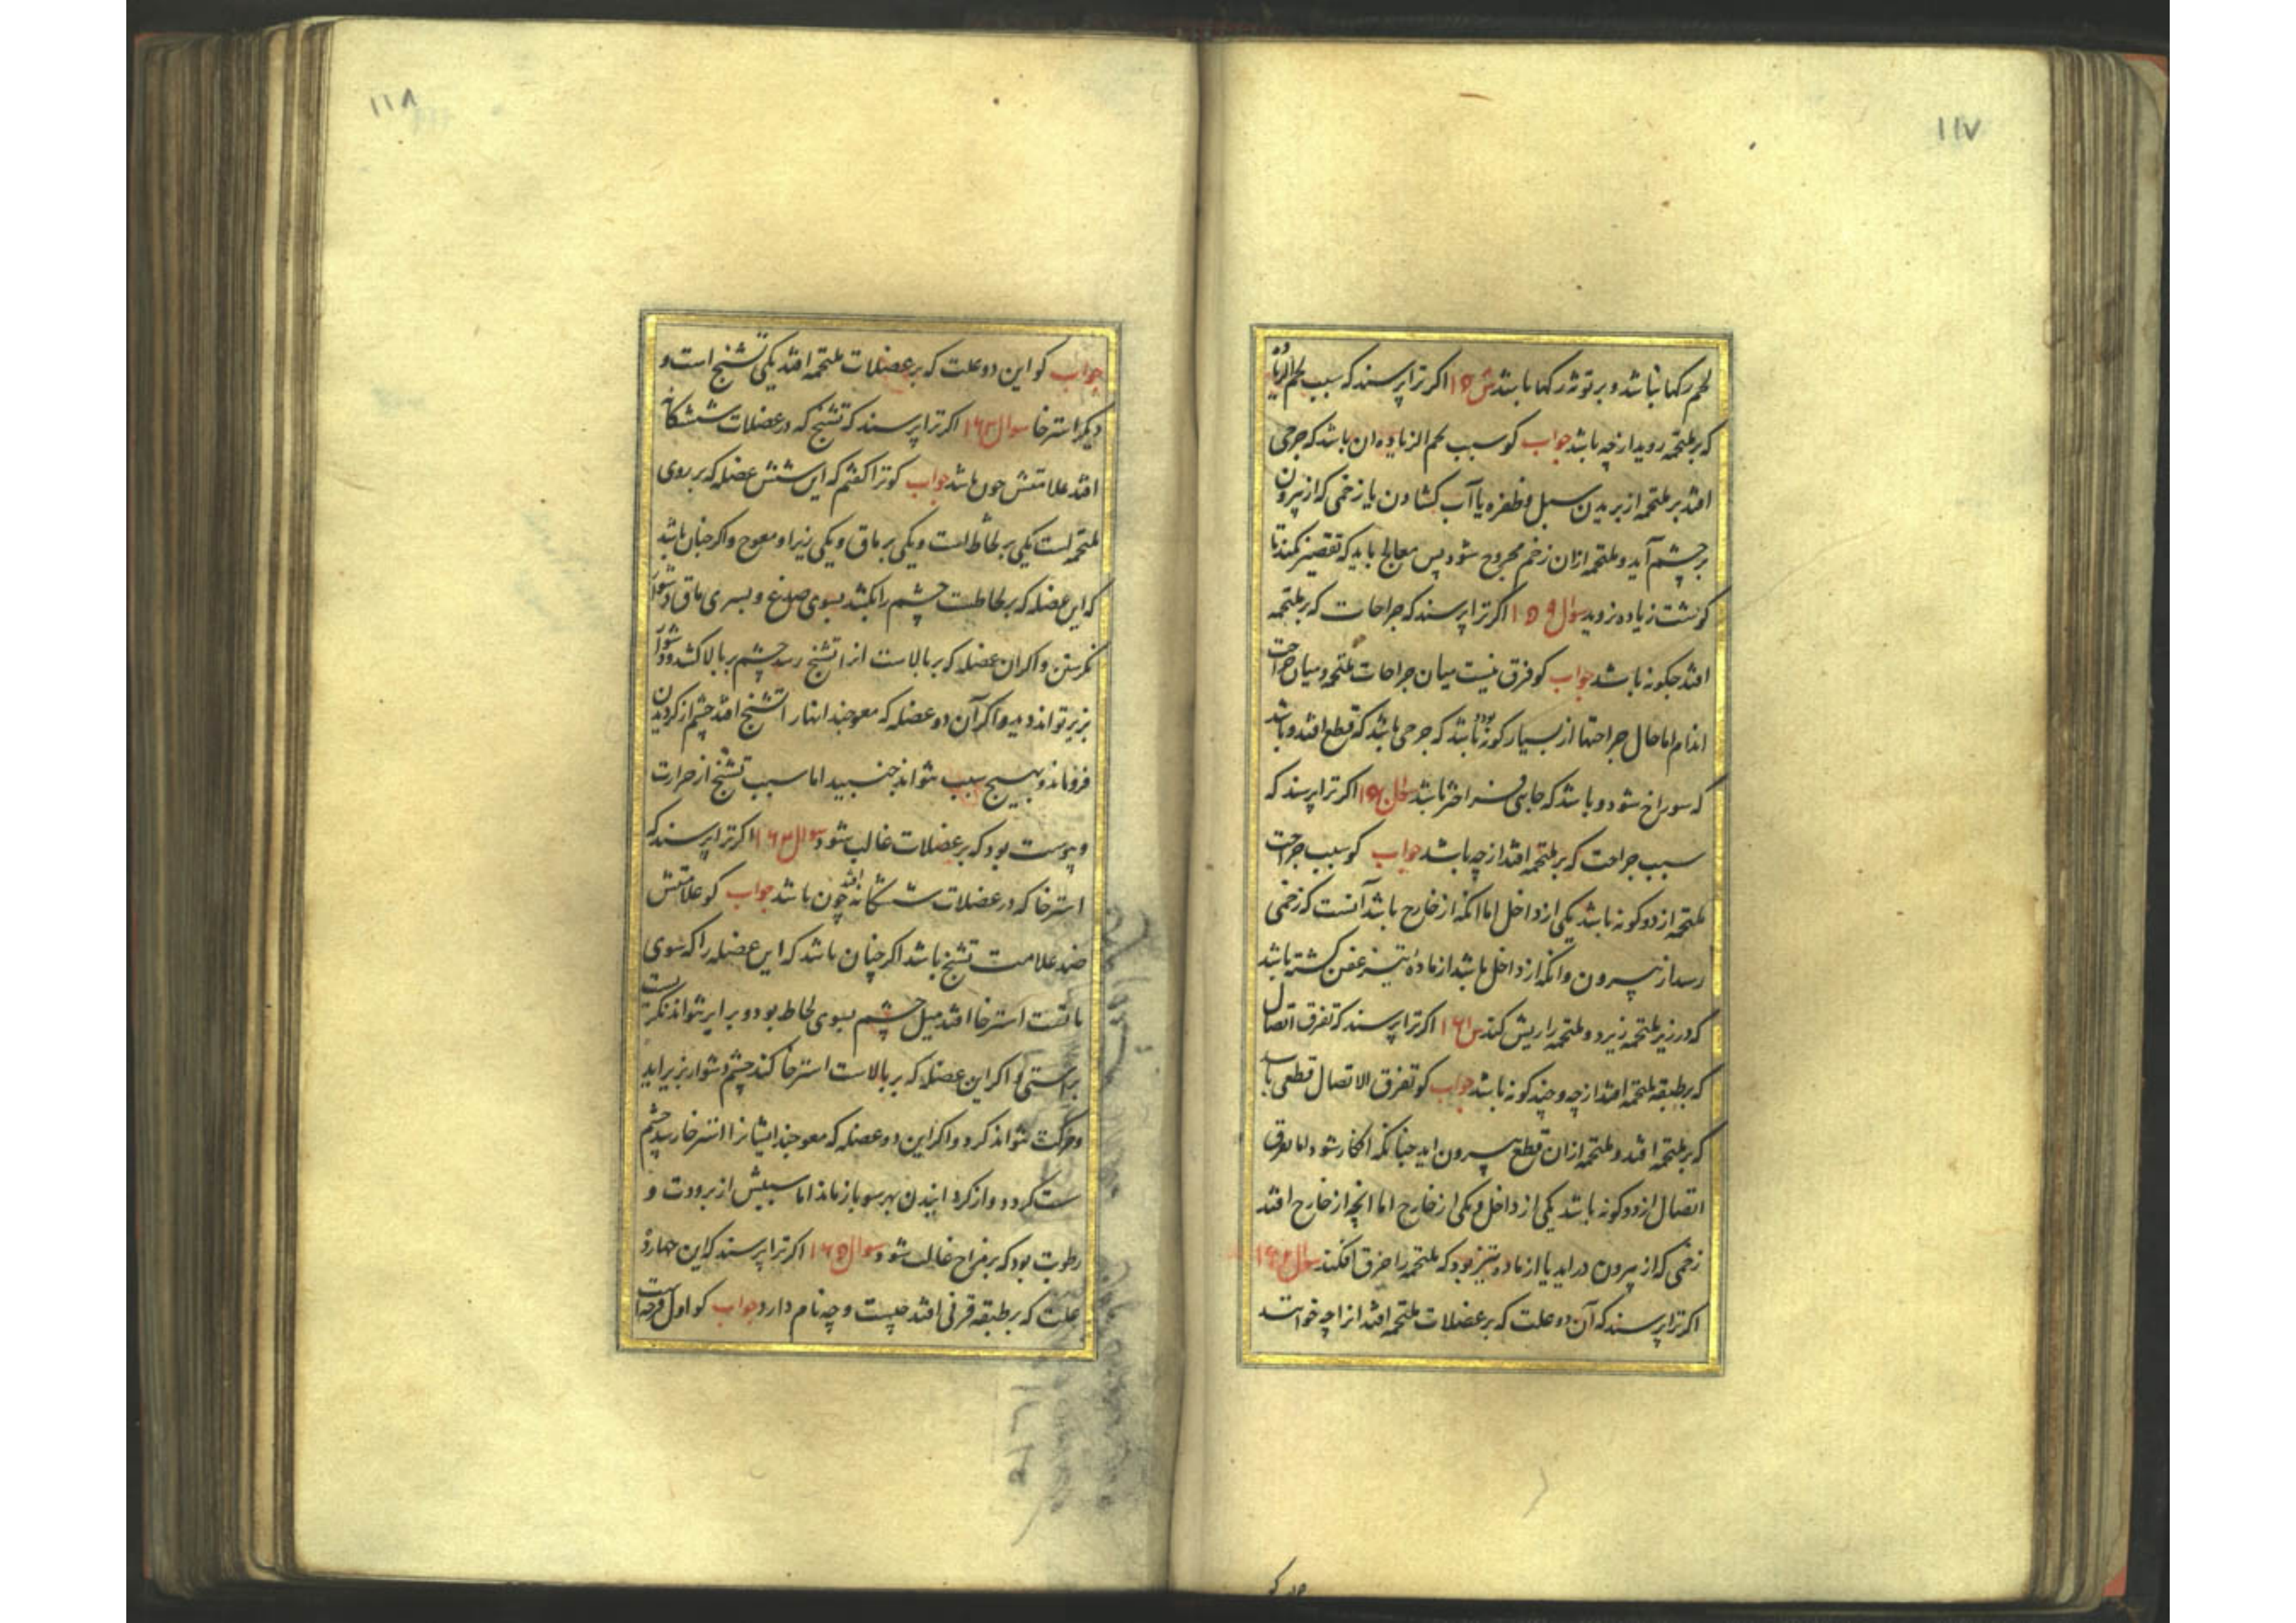 ۱۱۷
لحم رکها نباشد و بر توثه رکها باشد س ۱۵ اکر ترا پرسند که سبب لحم الزیاده
که بر ملتحمه روید از چه باشد جواب کو سبب لحم الزیاده ان باشد که جرحی
افتد بر ملتحمه از بریدن سبل و ظفره یا آب کشادن یا زخمی که از بیرون
بر چشم آید و ملتحمه ازان زخم مجروح شود پس معالج باید که تقصیر نکند تا
کوشت زیاده نروید سوال ۱۵۹ اکر ترا پرسند که جراحات که بر ملتحمه
افتد چکونه باشد جواب کو فرق نیست میان جراحات ملتحمه و میان جراحت
اندام اما حال جراحتها از بسیار کونه باشد که جرحی باشد که قطع افتد و باشد
که سوراخ شود و باشد که جایی فسراختر باشد سوال اکر ترا پرسند که
سبب جراحت که بر ملتحمه افتد از چه باشد جواب کو سبب جراحت
ملتحمه از دو کونه باشد یکی از داخل اما انکه از خارج باشد آنست که زخمی
رسد از بیرون وانکه از داخل باشد از مادهٔ تیز عفن کشته باشد
که در زیر ملتحمه ریزد و ملتحمه را ریش کند س ۱۶۱ اکر ترا پرسند که تفرق اتصال
که بر طبقه ملتحمه افتد از چه و چند کونه باشد جواب کو تفرق الاتصال قطعی باشد
که بر ملتحمه افتد و ملتحمه ازان قطع بیرون اید چنانکه افکار شود اما تفرق
اتصال از دو کونه باشد یکی از داخل و یکی از خارج اما انچه از خارج افتد
زخمی که از بیرون دراید یا از ماده تیز بود که ملتحمه را خرق افکند سوال ۱۶۲
اکر ترا پرسند که آن دو علت که بر عضلات ملتحمه افتد انرا چه خوانند
۱۱۸
جواب کو این دو علت که بر عضلات ملتحمه افتد یکی تشنج است و
دیکر استرخا سوال ۱۶۳ اکر ترا پرسند که تشنج که در عضلات ششکانه
افتد علامتش چون باشد جواب کو ترا کفتم که این شش عضله که بر روی
ملتحمه است یکی بر لحاظ است و یکی بر ماق و یکی زیر او معوج و اکر چنان باشد
که این عضله که بر لحاظست چشم را بکشد بسوی صدغ و بسوی ماق دشوار
نکرستن و اکر ان عضله که بر بالاست انرا تشنج رسد چشم بر بالا کشد و دشوار
بزیر تواند دید و اکر آن دو عضله که معوجند انها را تشنج افتد چشم از کردیدن
فرو ماند و بهیچ سبب نتواند جنبید اما سبب تشنج از حرارت
و یبوست بود که بر عضلات غالب شود سوال ۱۶۴ اکر ترا پرسند که
استرخا که در عضلات ششکانه افتد چون باشد جواب کو علامتش
ضد علامت تشنج باشد اکر چنان باشد که این عضله را که سوی
ماقست استرخا افتد میل چشم بسوی لحاظ بود و برابر نتواند نکریست
براستی و اکر این عضله که بر بالاست استرخا کند چشم دشوار بزیر اید
و حرکت نتواند کرد و اکر این دو عضله که معوجند ایشانرا استرخا رسد چشم
ست کردد و از کردانیدن بهر سو باز ماند اما سببش از برودت و
رطوبت بود که بر مزاج غالب شود سوال ۱۶۵ اکر ترا پرسند که این چهارده
علت که بر طبقه قرنی افتد چیست و چه نام دارد جواب کو اول قرحه است